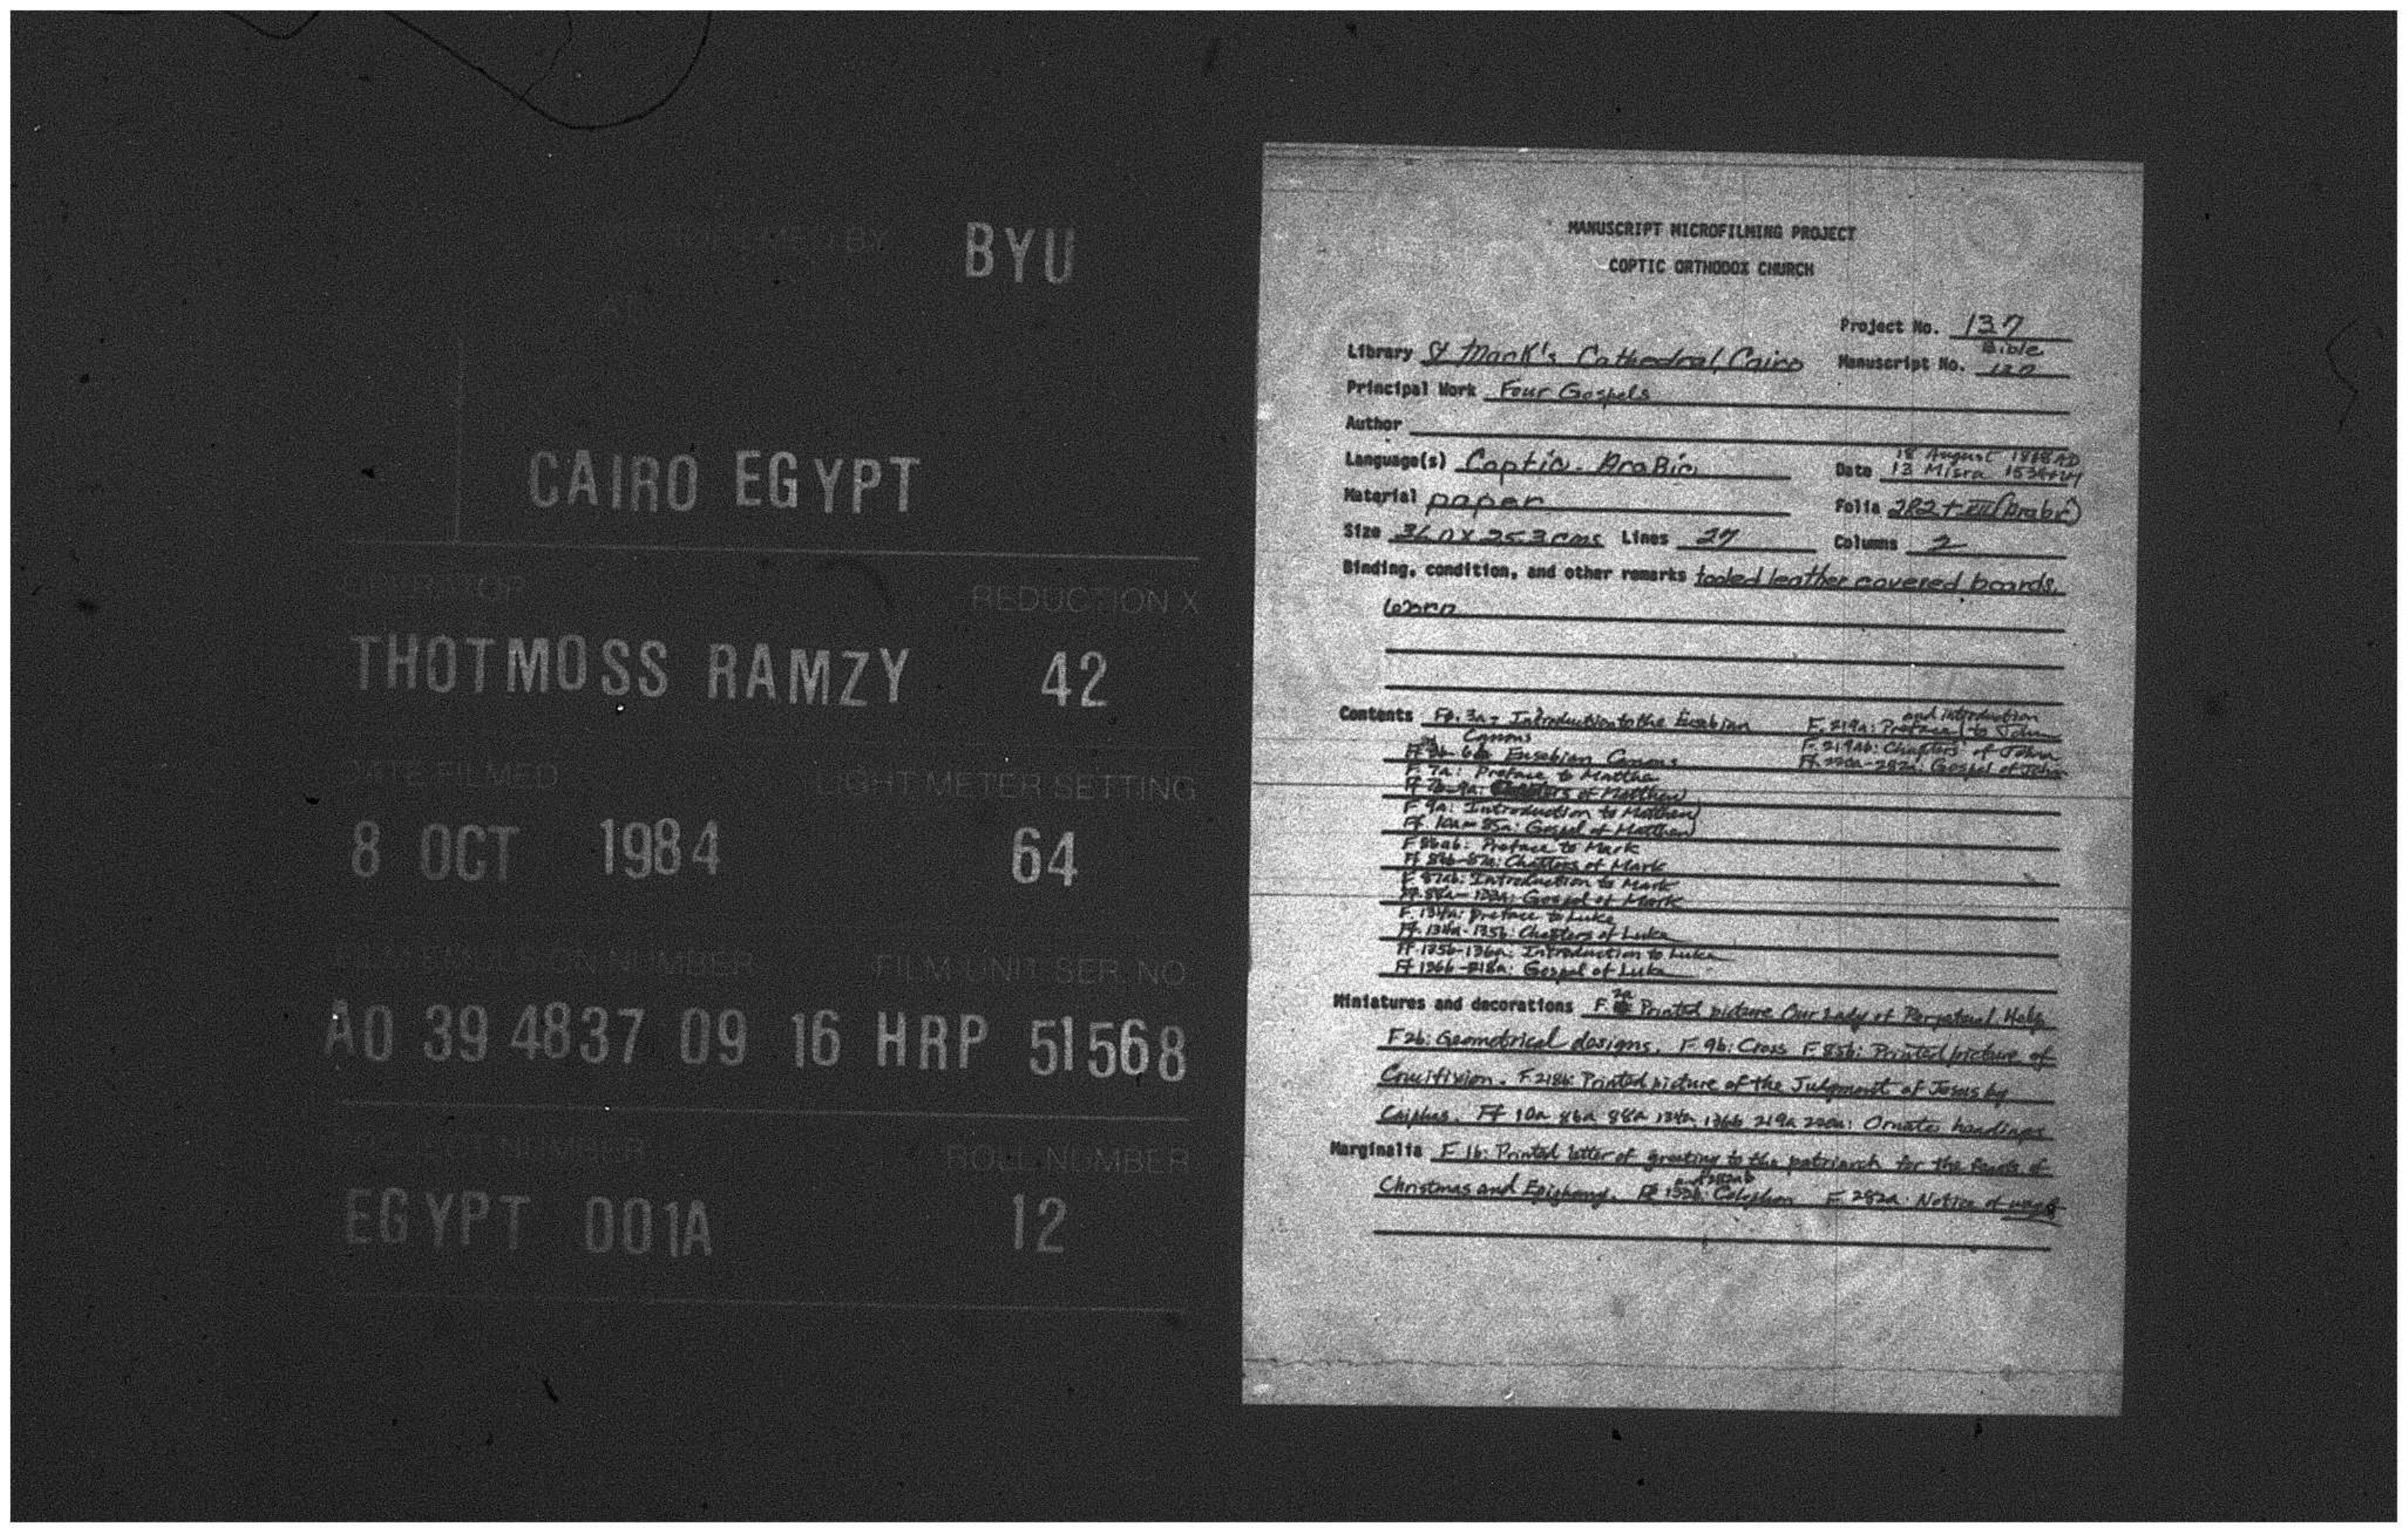 MICROFILMED BY BYU
AT
CAIRO EGYPT
OPERATOR REDUCTION X
THOTMOSS RAMZY 42
DATE FILMED LIGHT METER SETTING
8 OCT 1984 64
FILM EMULSION NUMBER FILM UNIT SER. NO
A0 39 4837 09 16 HRP 51568
PROJECT NUMBER ROLL NUMBER
EGYPT 001A 12
MANUSCRIPT MICROFILMING PROJECT
COPTIC ORTHODOX CHURCH
Project No. 137
Library St Mark's Cathedral, Cairo Manuscript No. Bible
Principal Work Four Gospels
Author
Language(s) Coptic-Arabic
18 August 1868 AD
Date 12 Misra
Material paper Folia 282 + XII (Arabic)
Size Lines 27 Columns 2
Binding, condition, and other remarks tooled leather covered boards.
worn
Contents Ff. 3a- Introduction to the Eusebian
Canons
Eusebian Canons
F 7a: Preface to Matthew
Ff 7b-9a: Chapters of Matthew
F 9a: Introduction to Matthew
Ff. 10a-85a: Gospel of Matthew
F 86ab: Preface to Mark
Ff 86b-87a: Chapters of Mark
F 87ab: Introduction to Mark
Ff. 88a- Gospel of Mark
F. 134a: Preface to Luke
Ff. 134a-135b: Chapters of Luke
Ff 135b-136a: Introduction to Luke
Ff 136b-218a: Gospel of Luke
and introduction
F. 219a: Preface to John
F. 219ab: Chapters of John
Ff 220a-282a: Gospel of John
Miniatures and decorations F. 2a Printed picture Our Lady of Perpetual Help
F 2b: Geometrical designs. F. 9b: Cross F 85b: Printed picture of
Crucifixion. F 218b: Printed picture of the Judgment of Jesus by
Caiphas. Ff 10a 86a 88a 134a 136b 219a 220a: Ornate headings
Marginalia F 1b: Printed letter of greeting to the patriarch for the feasts of
Christmas and Epiphany. Colophon F 282a: Notice of